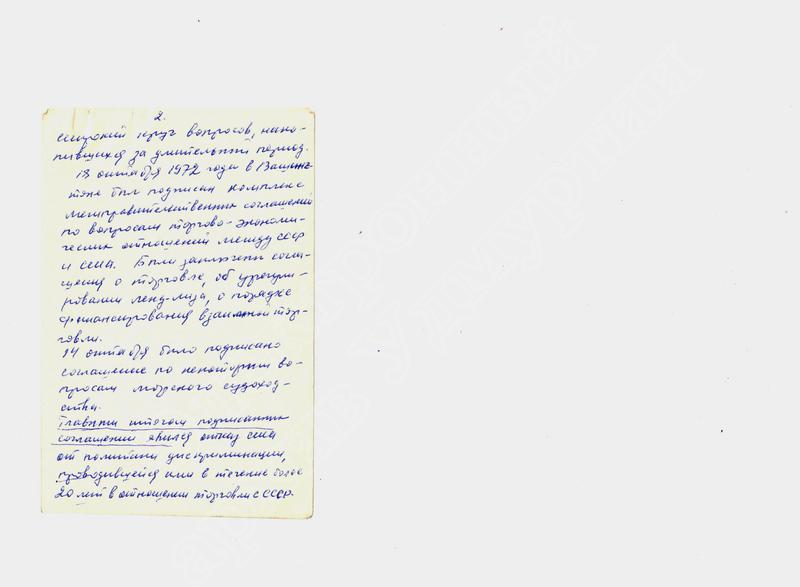 2.
широкий круг вопросов, нако-
пившихся за длительный период.
18 октября 1972 года в Вашинг-
тоне был подписан комплекс
межправительственных соглашений
по вопросам торгово-экономи-
ческих отношений между СССР
и США. Были заключены согла-
шения о торговле, об урегули-
ровании ленд-лиза, о порядке
финансирования взаимной тор-
говли.
14 октября было подписано
соглашение по некоторым во-
просам морского судоход-
ства.
Главным итогом подписанных
соглашений явился отказ США
от политики дискриминации,
проводившейся ими в течение более
20 лет в отношении торговли с СССР.